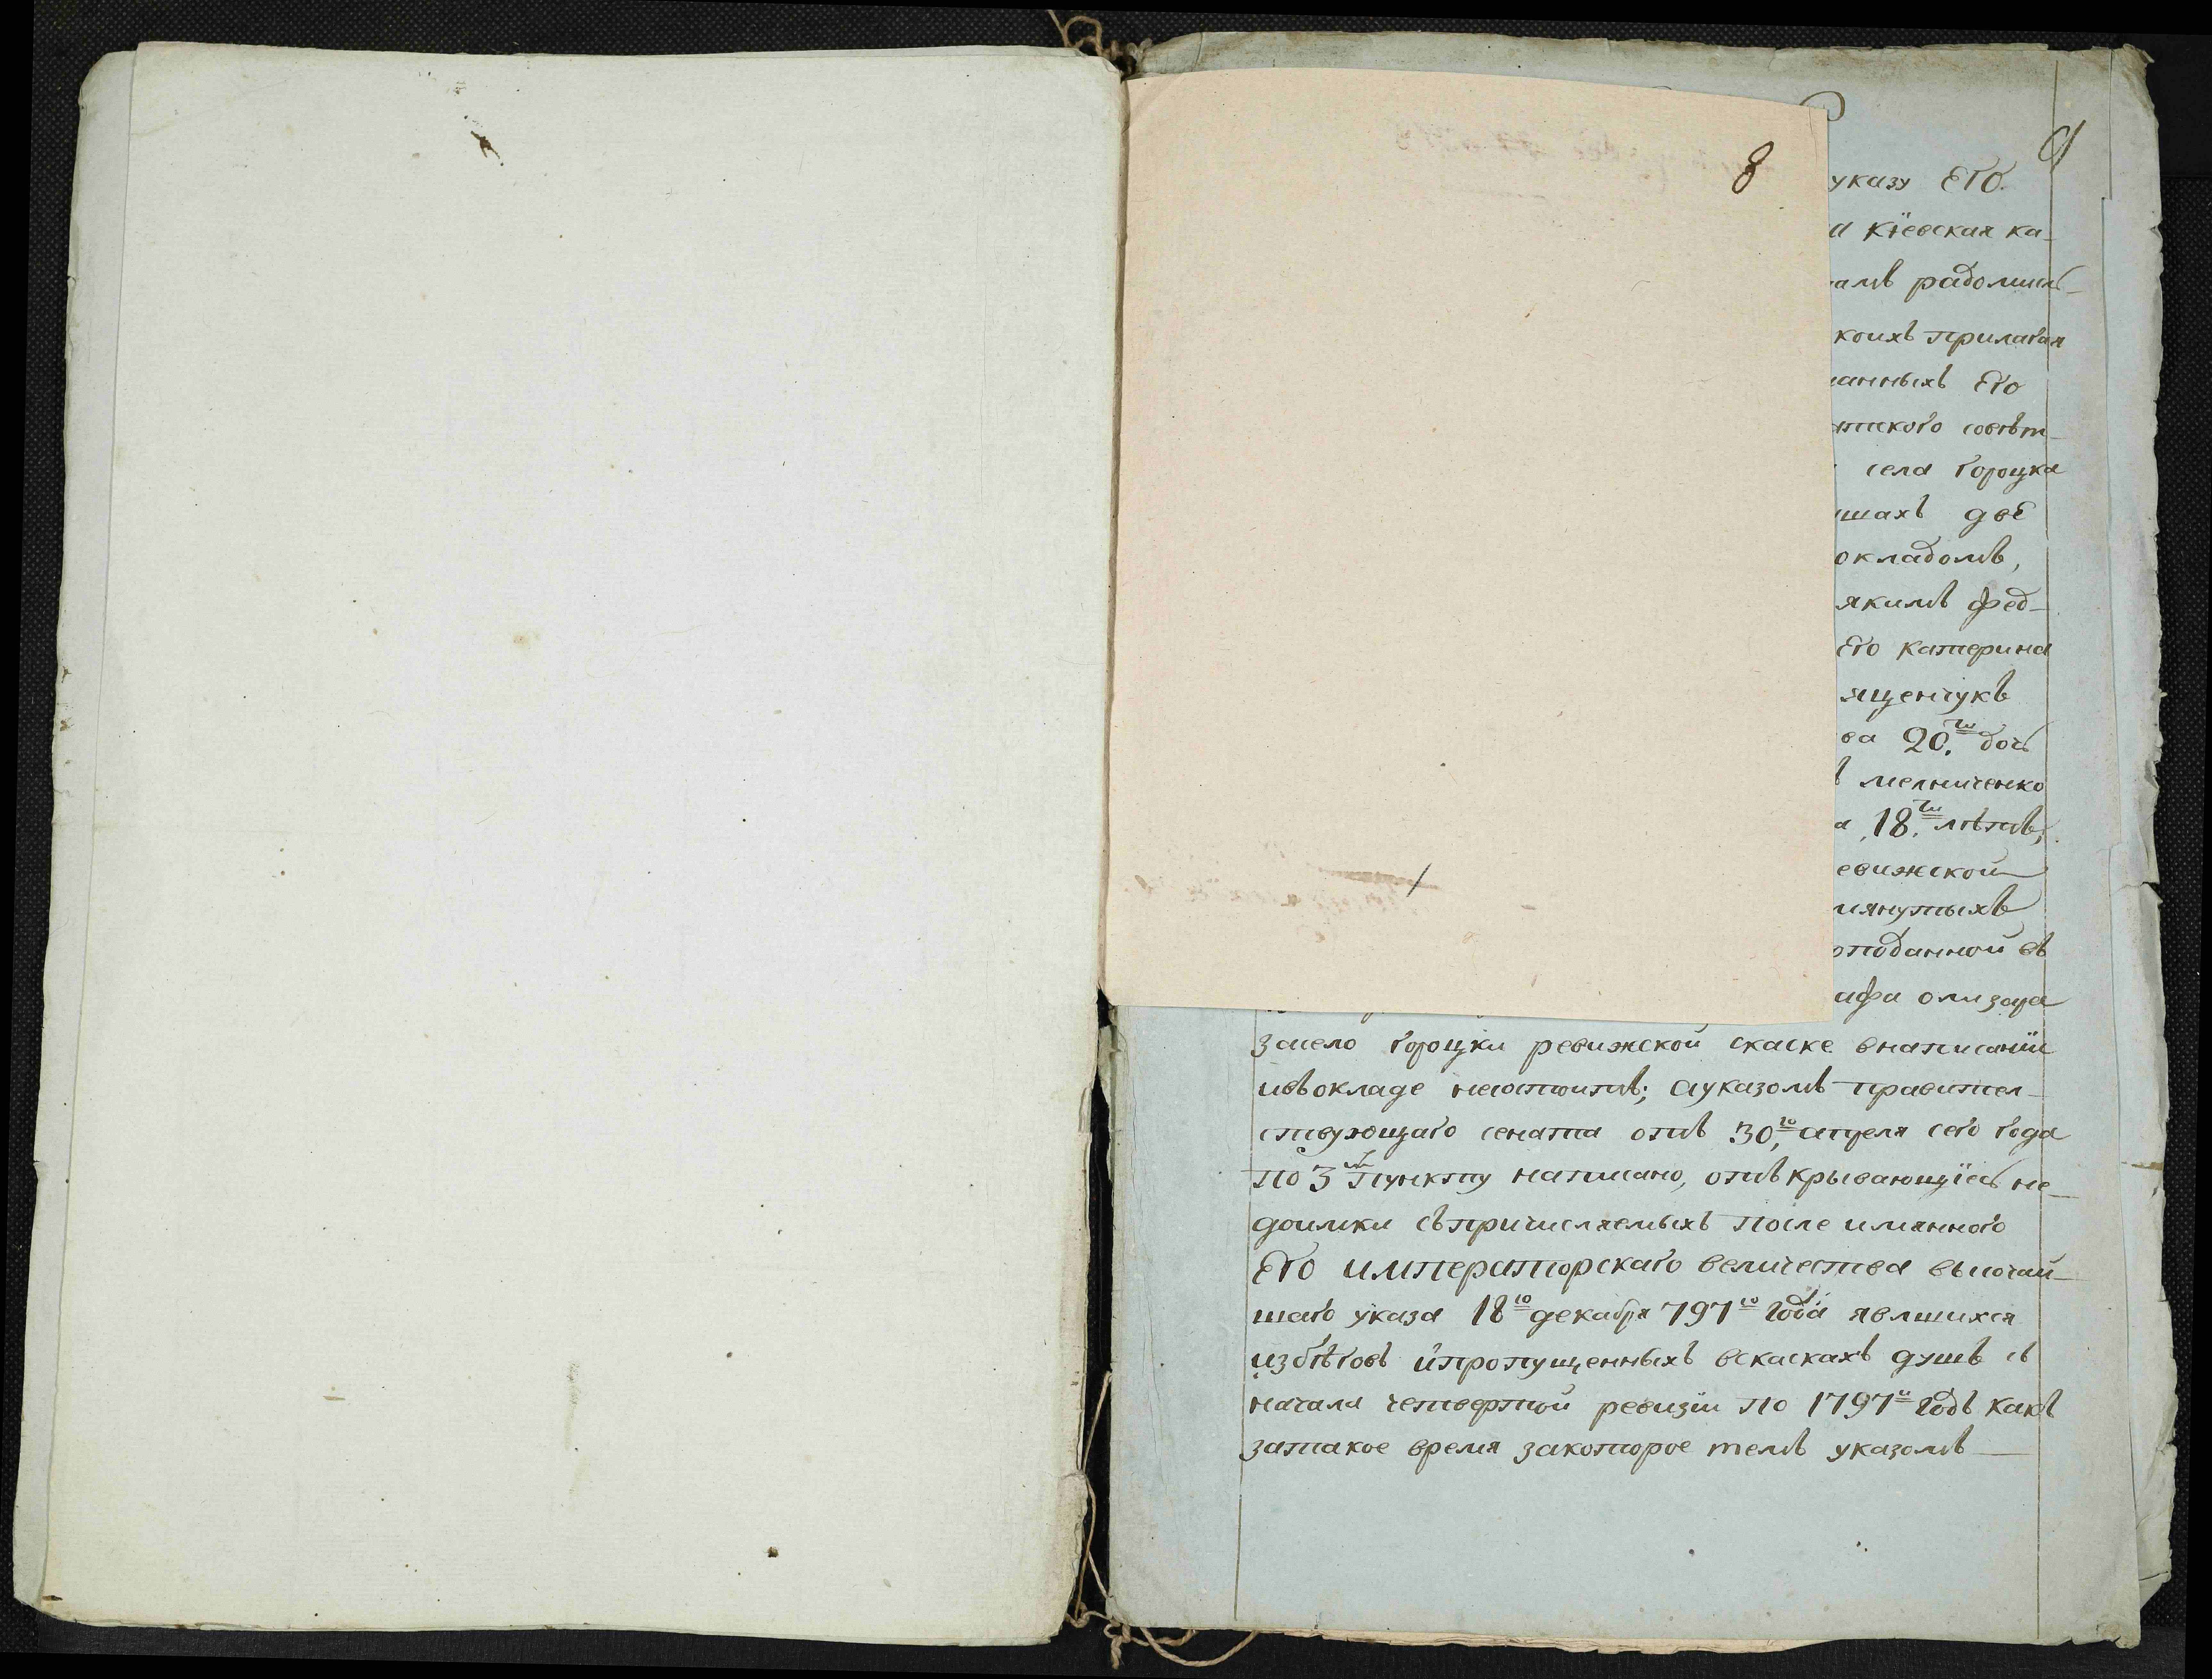 8
9
указу Его
а кїевская ка-
амъ радомысл-
коихъ прилагая
анныхъ Его
тского совѣт-
села горощка
шахъ две
окладомъ,
якимъ фед-
Его катерина
ященчукъ
ва 20.ти дочь
ъ мелниченко
а 18.ти лѣтъ;
евижской
мянутыхъ
оподанной въ
афа олизара
засело горощки ревижской скаске внаписанїи
ивъокладе несостоитъ; ауказомъ правител-
ствующаго сената отъ 30.го апреля сего года
по 3му пункту написано, отъкрывающїесь не-
доимки съпричисляемыхъ после имянного
Его императорскаго величества высочай-
шаго указа 18го декабря 797го года явлшихся
избѣговъ ипропущенныхъ вскаскахъ душъ съ
начала четвертой ревизїи по 1797й годъ какъ
затакое время закоторое темъ указомъ